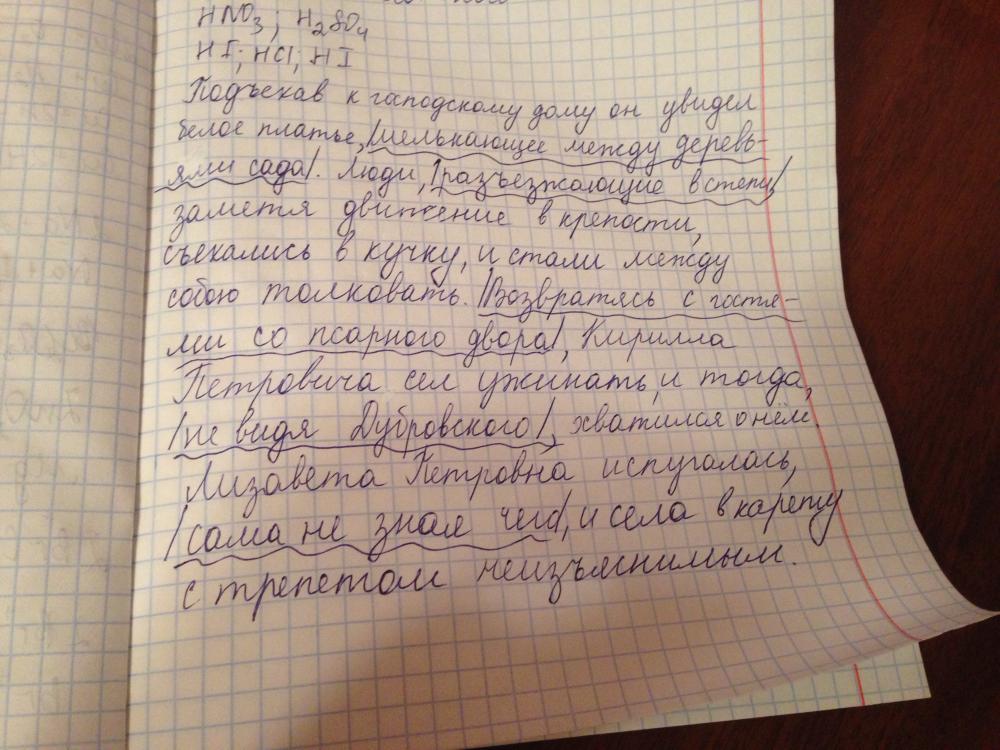 HNO3; H2SO4
HI; HCl; HI
Подъехав к гаподскому дому он увидел
белое платье, /мелькающее между деревь-
ями сада/. Люди, /разъезжающие в степи/
заметя движение в крепости,
съехались в кучку, и стали между
собою толковать. /Возвратясь с гостя-
ми со псарного двора/, Кирилла
Петровича сел ужинать, и тогда,
/не видя Дубровского/, хватился о нём.
Лизавета Петровна испугалась,
/сама не зная чего/, и села в карету
с трепетом неизъяснимым.